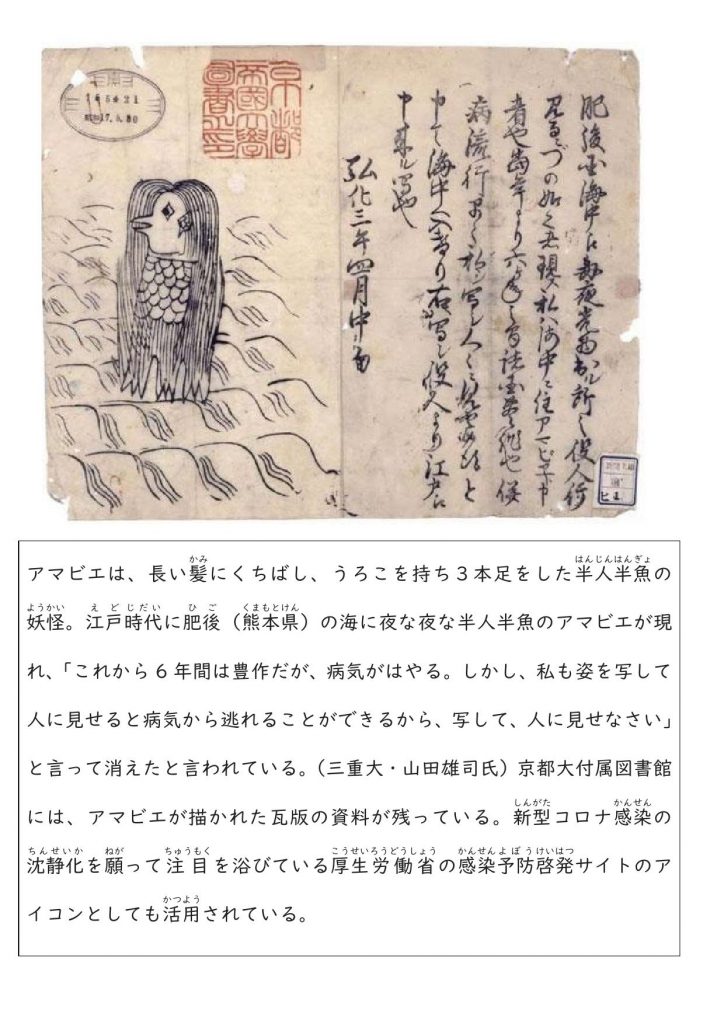 肥後国海中江毎夜光物出ル所之役人行
見るニづの如之者現ス私ハ海中ニ住アマビヱト申
者也當年より六ヶ年之間諸国豊作也併
病流行早々私シ写シ人々ニ見せ候得と
申て海中へ入けり右写シ役人より江戸江
申来ル写也
弘化三年四月中旬
京都
帝國大學
圖書之印
かみ はんじんはんぎょ
アマビエは、長い髪にくちばし、うろこを持ち3本足をした半人半魚の
ようかい えどじだい ひご くまもとけん
妖怪。江戸時代に肥後（熊本県）の海に夜な夜な半人半魚のアマビエが現
れ、「これから6年間は豊作だが、病気がはやる。しかし、私も姿を写して
人に見せると病気から逃れることができるから、写して、人に見せなさい」
と言って消えたと言われている。（三重大・山田雄司氏）京都大付属図書館
しんがた かんせん
には、アマビエが描かれた瓦版の資料が残っている。新型コロナ感染の
ちんせいか ねが ちゅうもく こうせいろうどうしょう かんせんよぼうけいはつ
沈静化を願って注目を浴びている厚生労働省の感染予防啓発サイトのア
かつよう
イコンとしても活用されている。